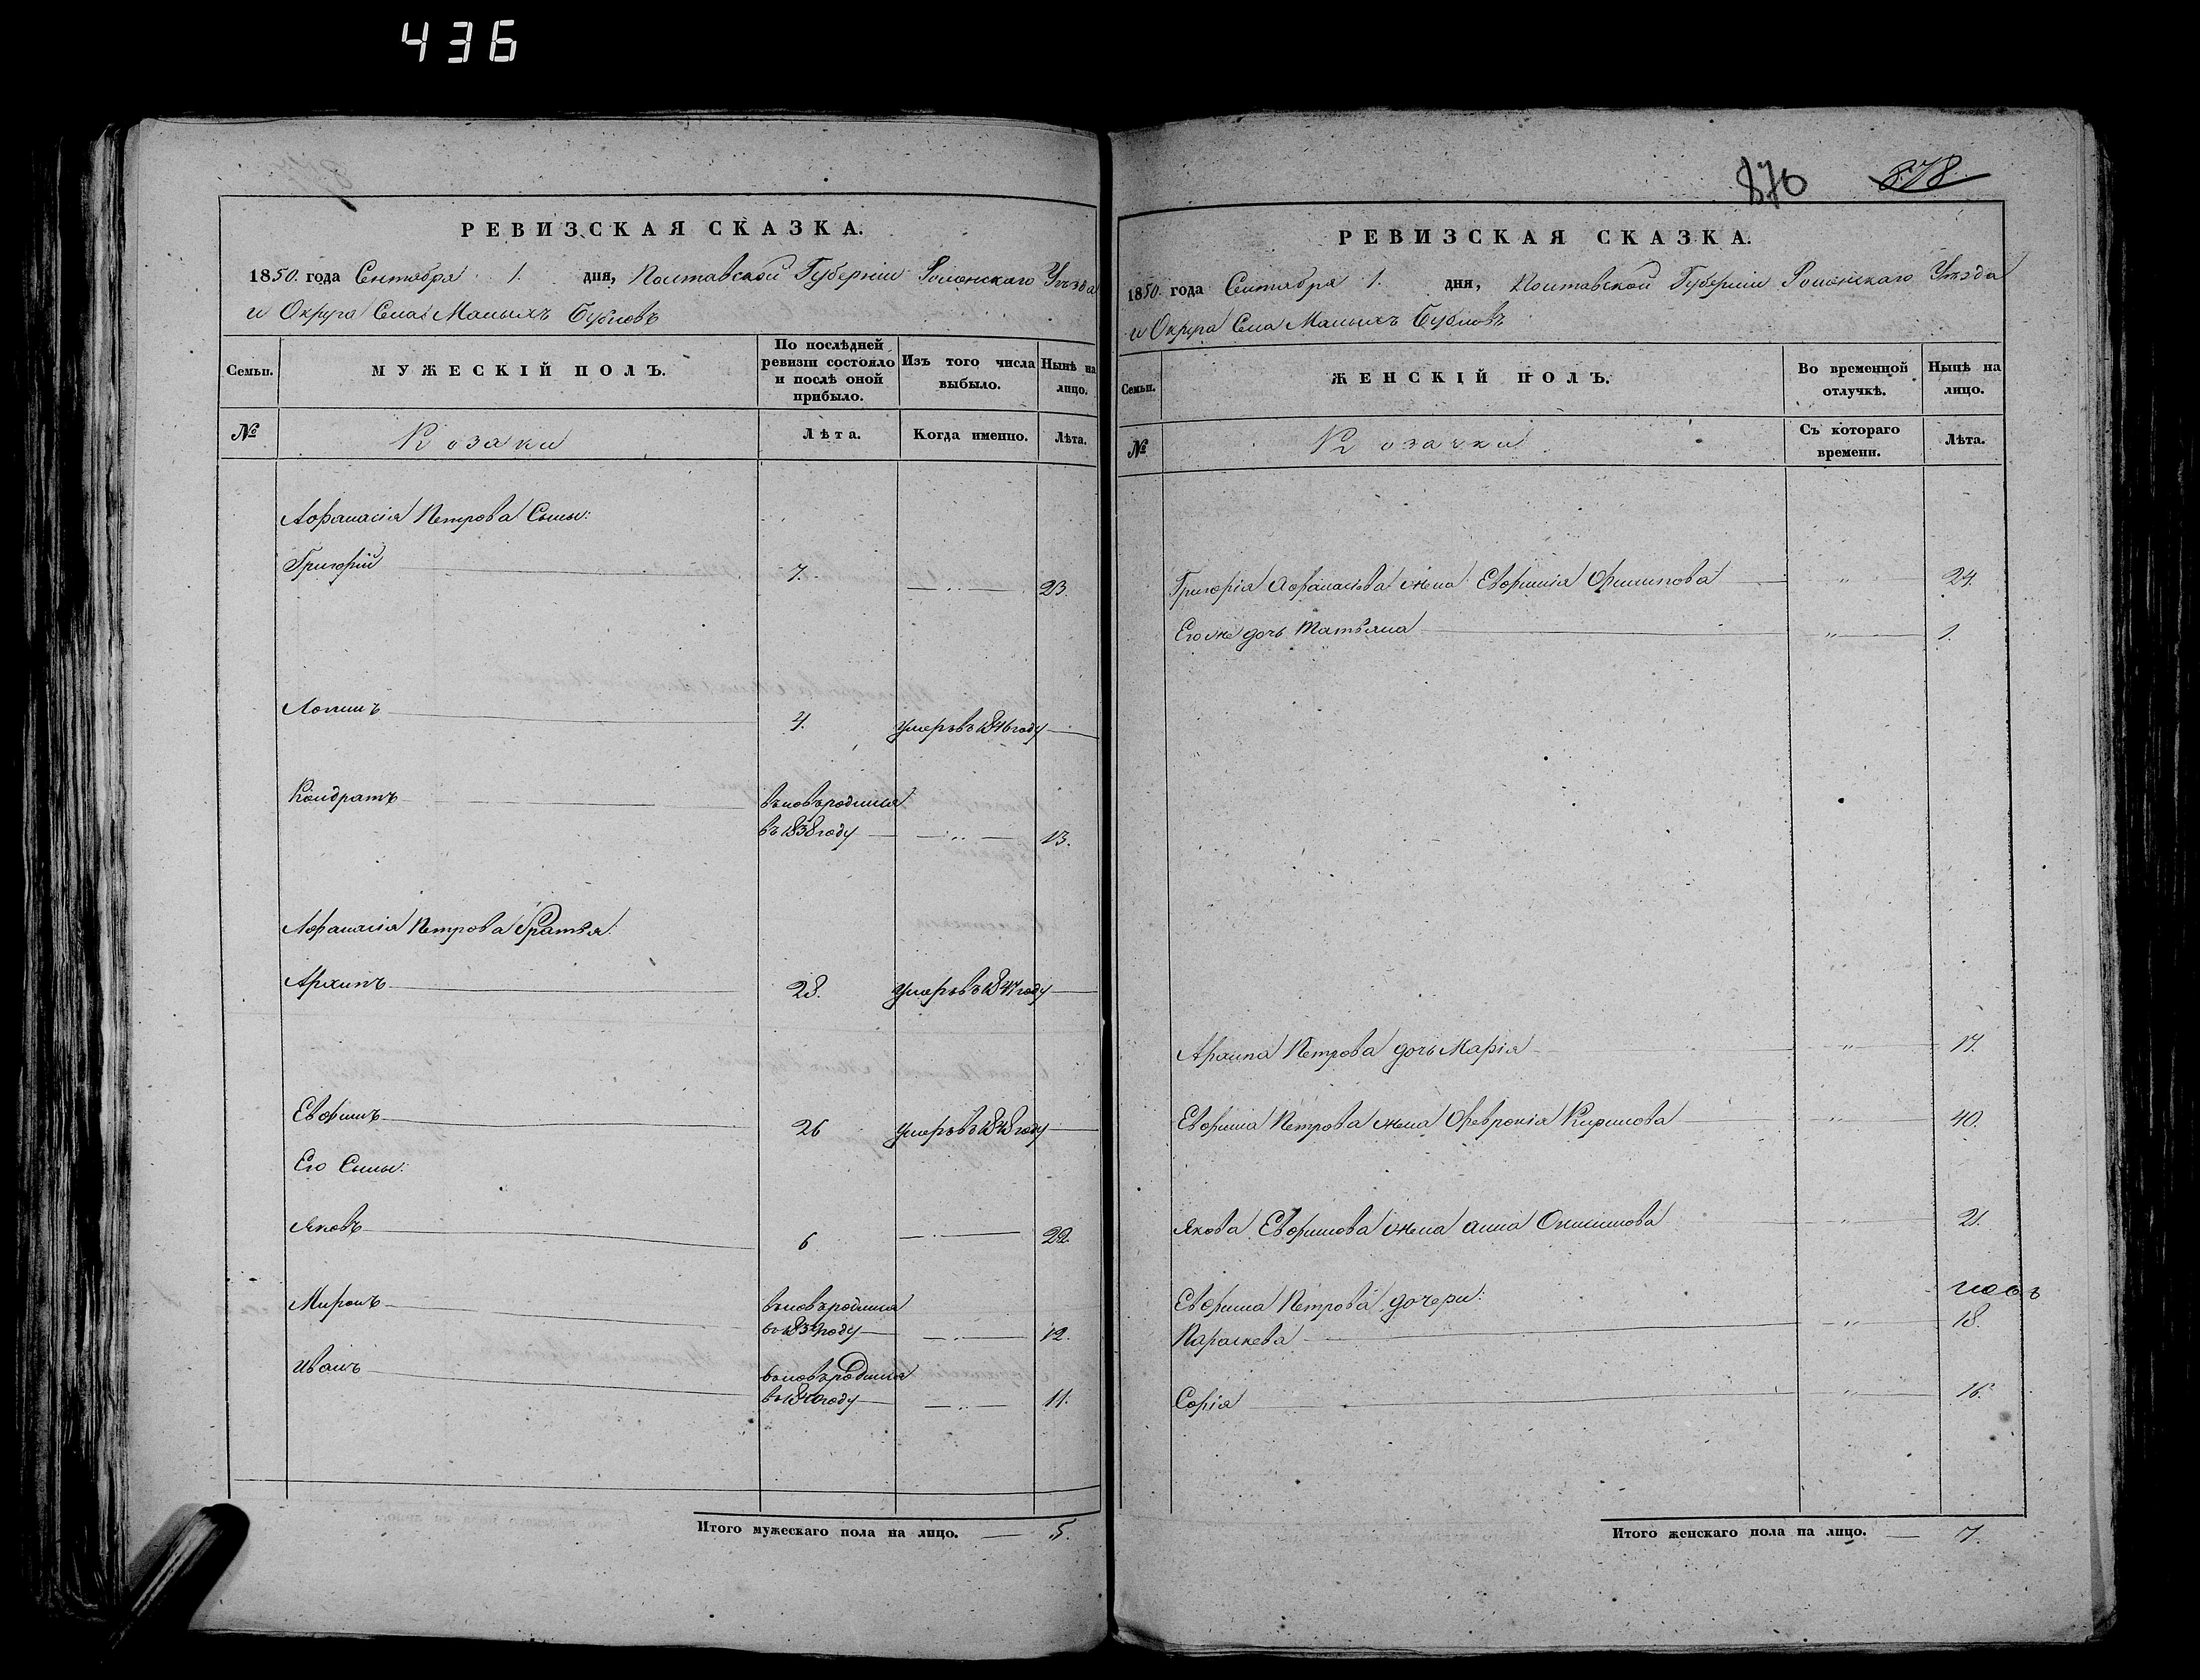 436
РЕВИЗСКАЯ СКАЗКА.
1850. года Сентября 1. дня, Полтавской Губернiи Роменскаго Уѣзда
и Округа Села Малыхъ Бубновъ
Семьи.
МУЖЕСКІЙ ПОЛЪ.
По послѣдней ревизіи состояло и послѣ оной прибыло.
Изъ того числа выбыло.
Нынѣ на лицо.
№
Козаки
Лѣта.
Когда именно.
Лѣта.
Афанасiя Петрова Сыны:
Григорiй 7. 23.
Логинъ 4. умеръ въ 1846 году
Кондратъ вновьродился
въ 1838 году 13.
Афанасiя Петрова Братья:
Архипъ 28. умеръ въ 1847 году
Евфимъ 26 умеръ въ 1848 году
Его Сыны:
Яковъ 6 22.
Миронъ вновьродился
въ 1839 году 12.
Иванъ вновьродился
въ 1840 году 11.
Итого мужескаго пола на лицо. 5.
870 878
РЕВИЗСКАЯ СКАЗКА.
1850. года Сентября 1. дня, Полтавской Губернiи Роменскаго Уѣзда
и Округа Села Малыхъ Бубновъ
Семьи.
ЖЕНСКІЙ ПОЛЪ.
Во временной отлучкѣ.
Нынѣ на лицо.
№
Козачки
Съ котораго времени.
Лѣта.
Григорiя Афанасiева жена Евфимiя Филипова " 24.
Его же дочь Татьяна " 1.
Архипа Петрова дочь Марiя " 17.
Евфима Петрова жена Феврокiя Кирилова " 40.
Якова Евфимова жена Анна " 21.
Евфима Петрова дочери:
Параскева " 18.
Софiя " 16.
Итого женскаго пола на лицо. 7.